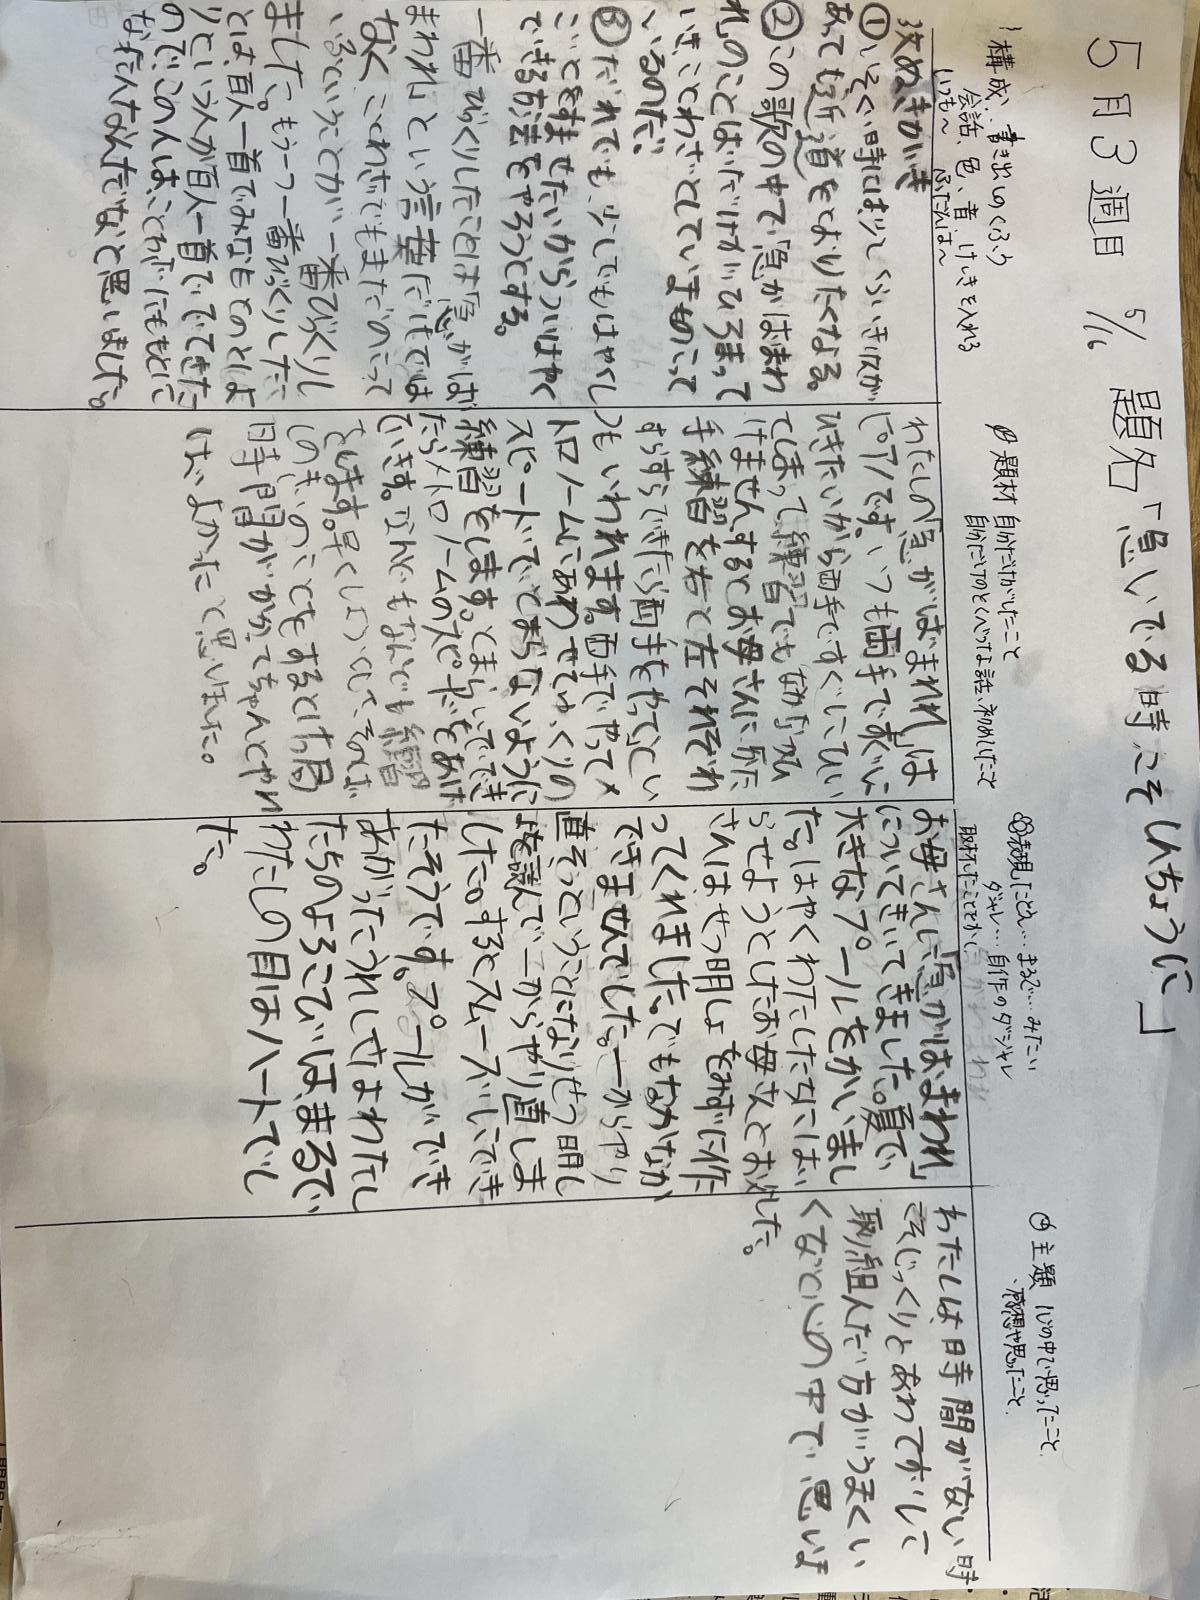 5月3週目 5/16 題名「急いでる時こそしんちょうに」
構成、書き出しのくふう
会話、色、音、けいきを入れる
いつも〜 ふだんは〜
抜きがいき
①いそぐ時には少しくらいき収が
あっても近道をとおりたくなる。
②この歌の中で「急がばまわ
れ」のことばだけがひろまって
いき、ことわざとしていまものこって
いるのだ。
③だれでも、少しでもはやくし
ごとをすませたいからついはやく
できる方法をやろうとする。
一番びっくりしたことは「急がば
まわれ」という言葉だけでは
なく、ことわざでもまだのこって
いるということが一番びっくりし
ました。もう一つ一番びっくりしたこ
とは百人一首でみなもとのとしよ
りという人が百人一首でできた
のでこの人は、ことわざにもとに
なったんなんだなと思いました。
題材 自分だけがしたこと
自分だけのとくべつな話、初めてしたこと
わたしの「急がばまわれ」は
ピアノです。いつも両手ですぐに
ひきたいから両手ですぐにひい
てしまって練習でもなかなかひ
けません。するとお母さんに「かた
手練習を右と左それぞれ
すらすらできたら両手をやって」とい
つもいわれます。両手でやってメ
トロノームにあわせてゆっくりの
スピードでとまらないように
練習をします。とまらないででき
たらメトロノームのスピードをあげ
ていきます。なんどもなんども練習
をします。早くしようとして、そのば
しのぎのことをするとけっ局
時間がかかってちゃんとやれ
ばよかったと思いました。
表現したこと… まるで…みたい
ダジャレ… 自作のダジャレ
取材したことをかく
お母さんに「急がばまわれ」
についてきいてきました。夏で
大きなプールをかいまし
た。はやくわたしたちにはい
らせようとしたお母さんとお父
さんはせつ明しょをみずに作
ってくれました。でもなかなか
できませんでした。一からやり
直そうということになりせつ明し
ょを読んで一からやり直しま
した。するとスムーズにでき
たそうです。プールができ
あがったうれしさはわたし
たちのよろこびは、まるで
わたしの目はハートでし
た。
主題 心の中で思ったこと
感想や思ったこと
わたしは、時間がない時
こそじっくりとあわてずにして
取り組んだ方がうまくい
くなと心の中で思いま
した。